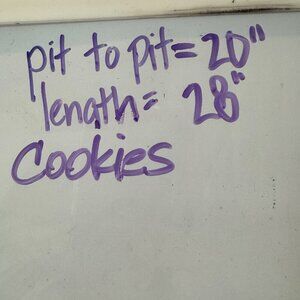 pit to pit = 20"
length = 28"
Cookies